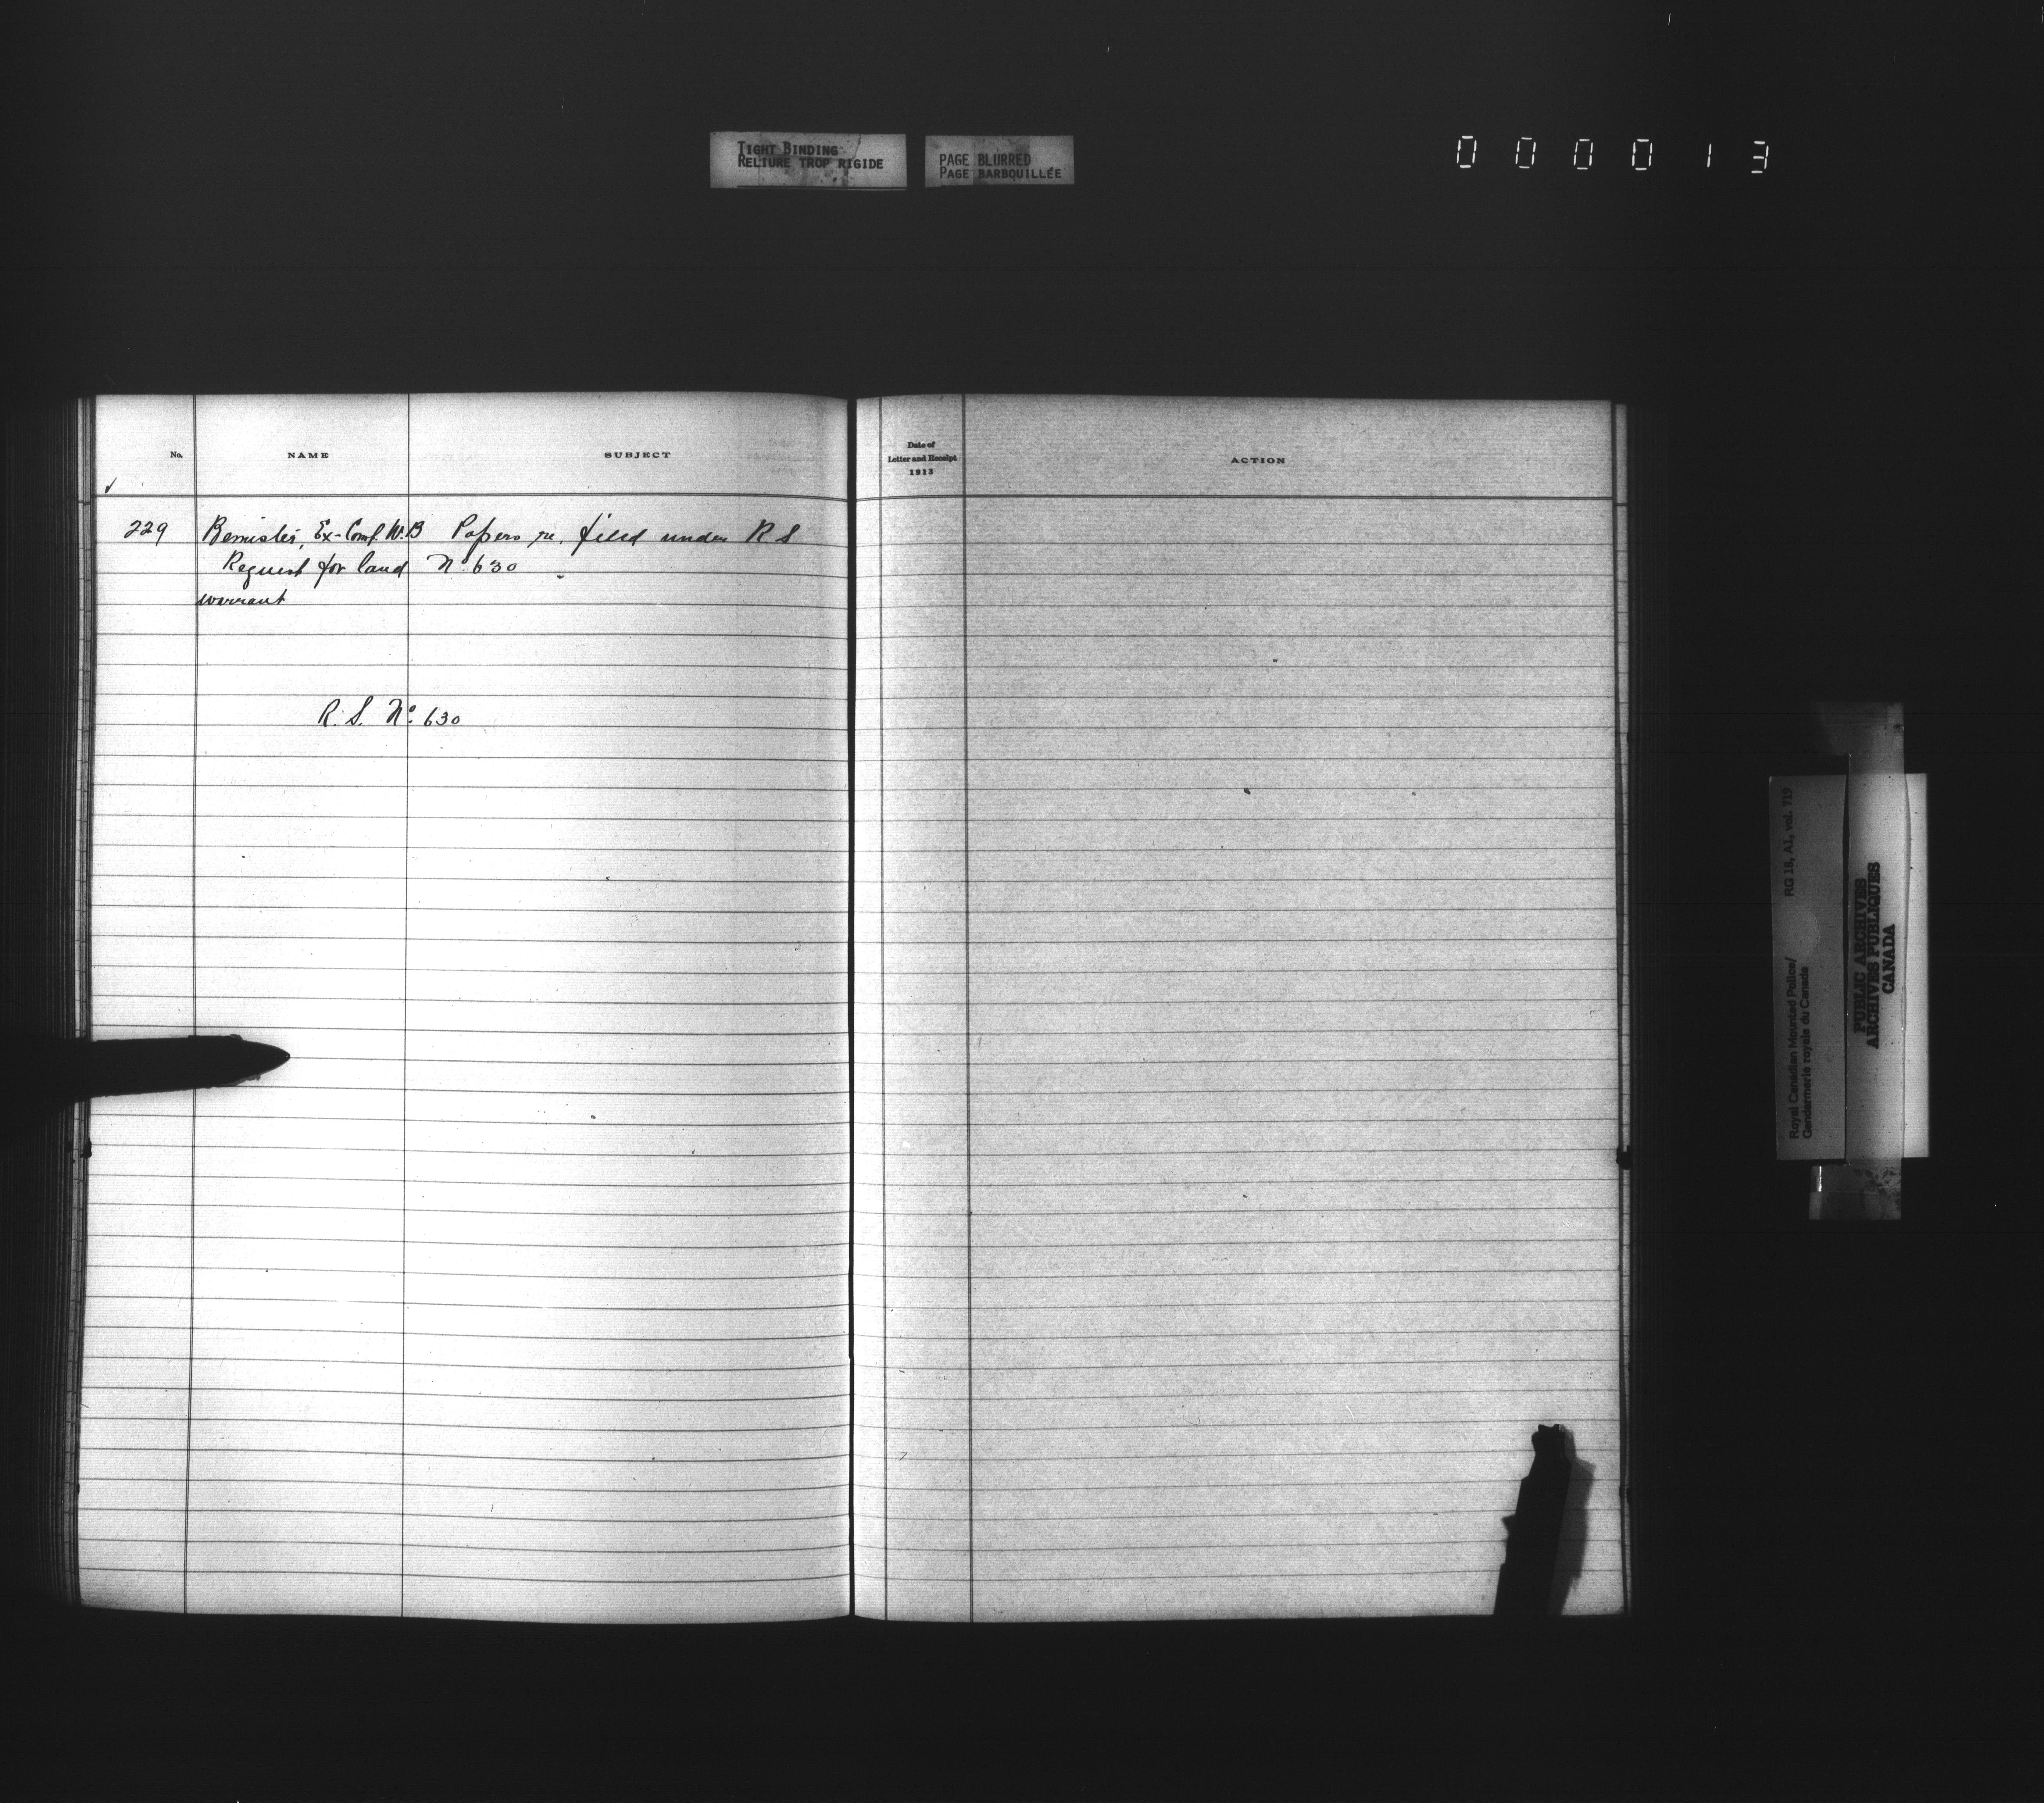 TIGHT BINDING
RELIURE TROP RIGIDE
PAGE BLURRED
PAGE BARBOUILLÉE
000013
No.
NAME
SUBJECT
Date of
Letter and Receipt
1913
ACTION
229 Bemister, Ex-Const. W.B Papers re. filed under R S
Request for land No. 630
warrant
R. S. No. 630
Royal Canadian Mounted Police/
Gendarmerie royale du Canada
RG 18, A1, vol. 719
PUBLIC ARCHIVES
ARCHIVES PUBLIQUES
CANADA